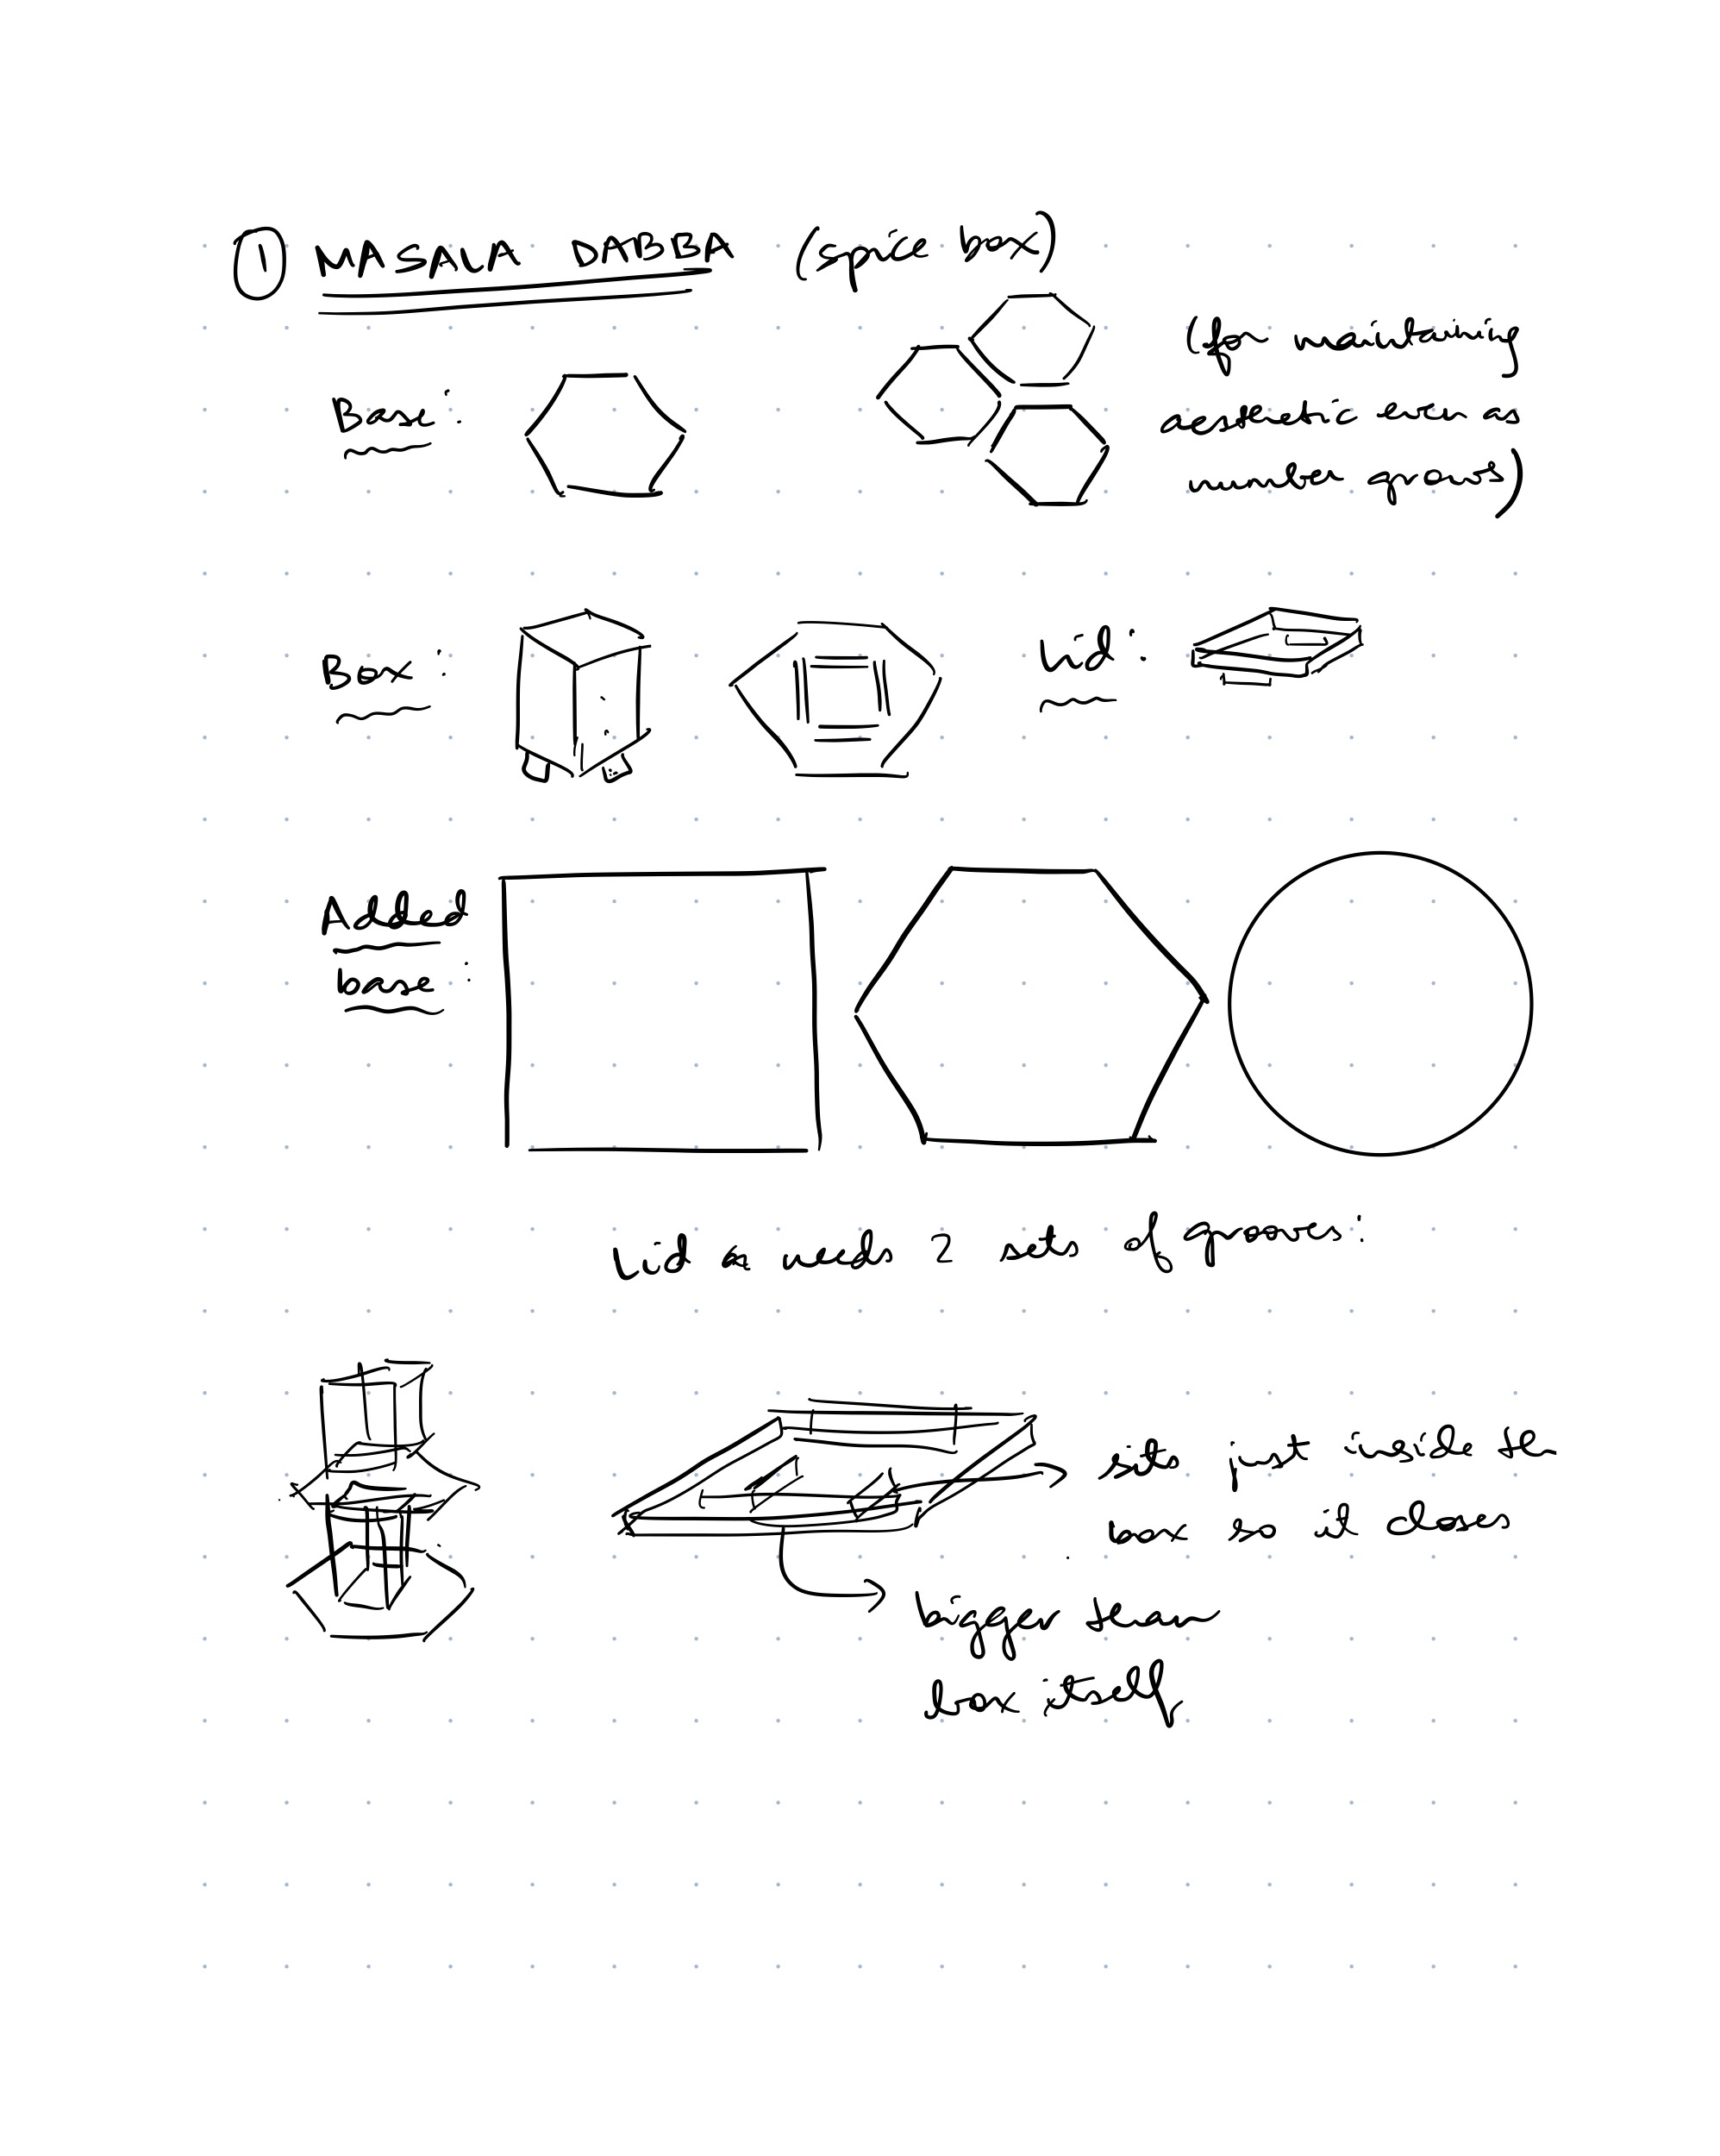 ① MASALA DABBA (spice box)
(for maintaining
Base:
aesthetic even as
number grows)
Box:
Lid:
Added
base:
Lid needs 2 sets of grooves:
sits just inside the
box so it closes
bigger than
box itself